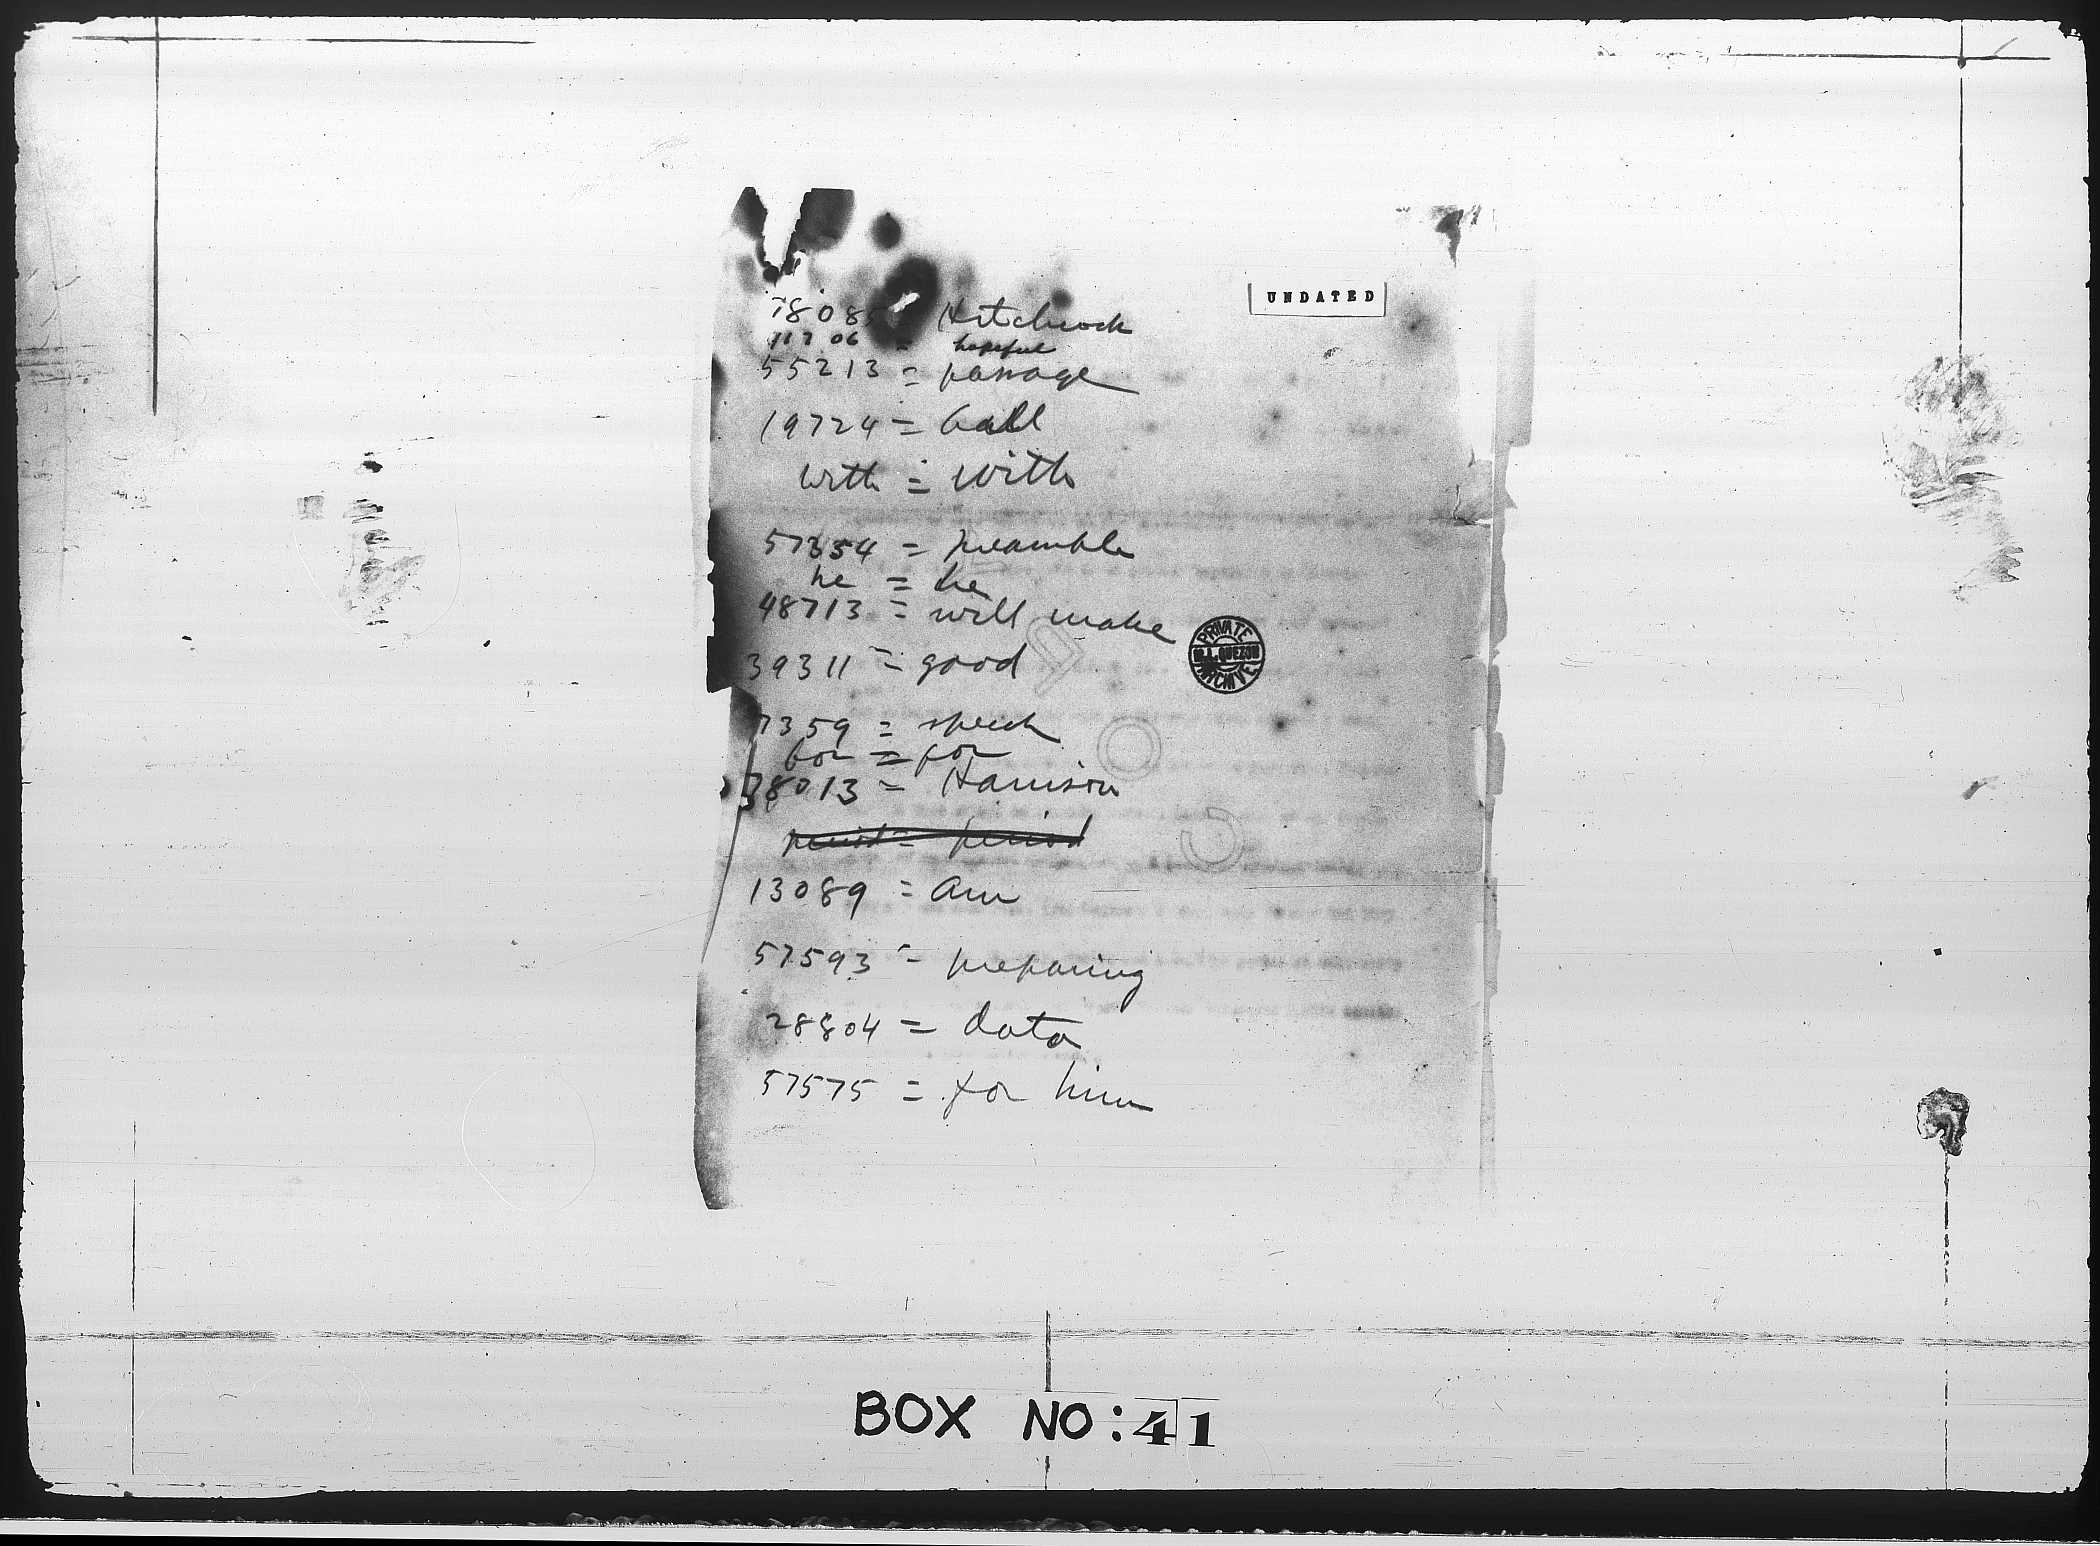 UNDATED
78085 = Hitchcock
11706 = hopeful
55213 = passage
19724 = ball
with = with
57354 = preamble
he = he
48713 = will make
39311 = good
7359 = speech
for = for
78013 = Harrison
period = period
13089 = am
57593 = preparing
28804 = data
57575 = for him
PRIVATE
M.L. QUEZON
ARCHIVE
BOX NO: 41